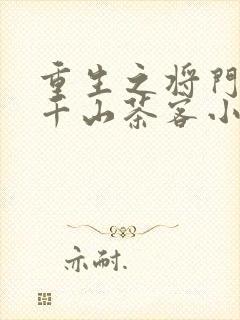 重生之将門
千山茶客小
亦耐.